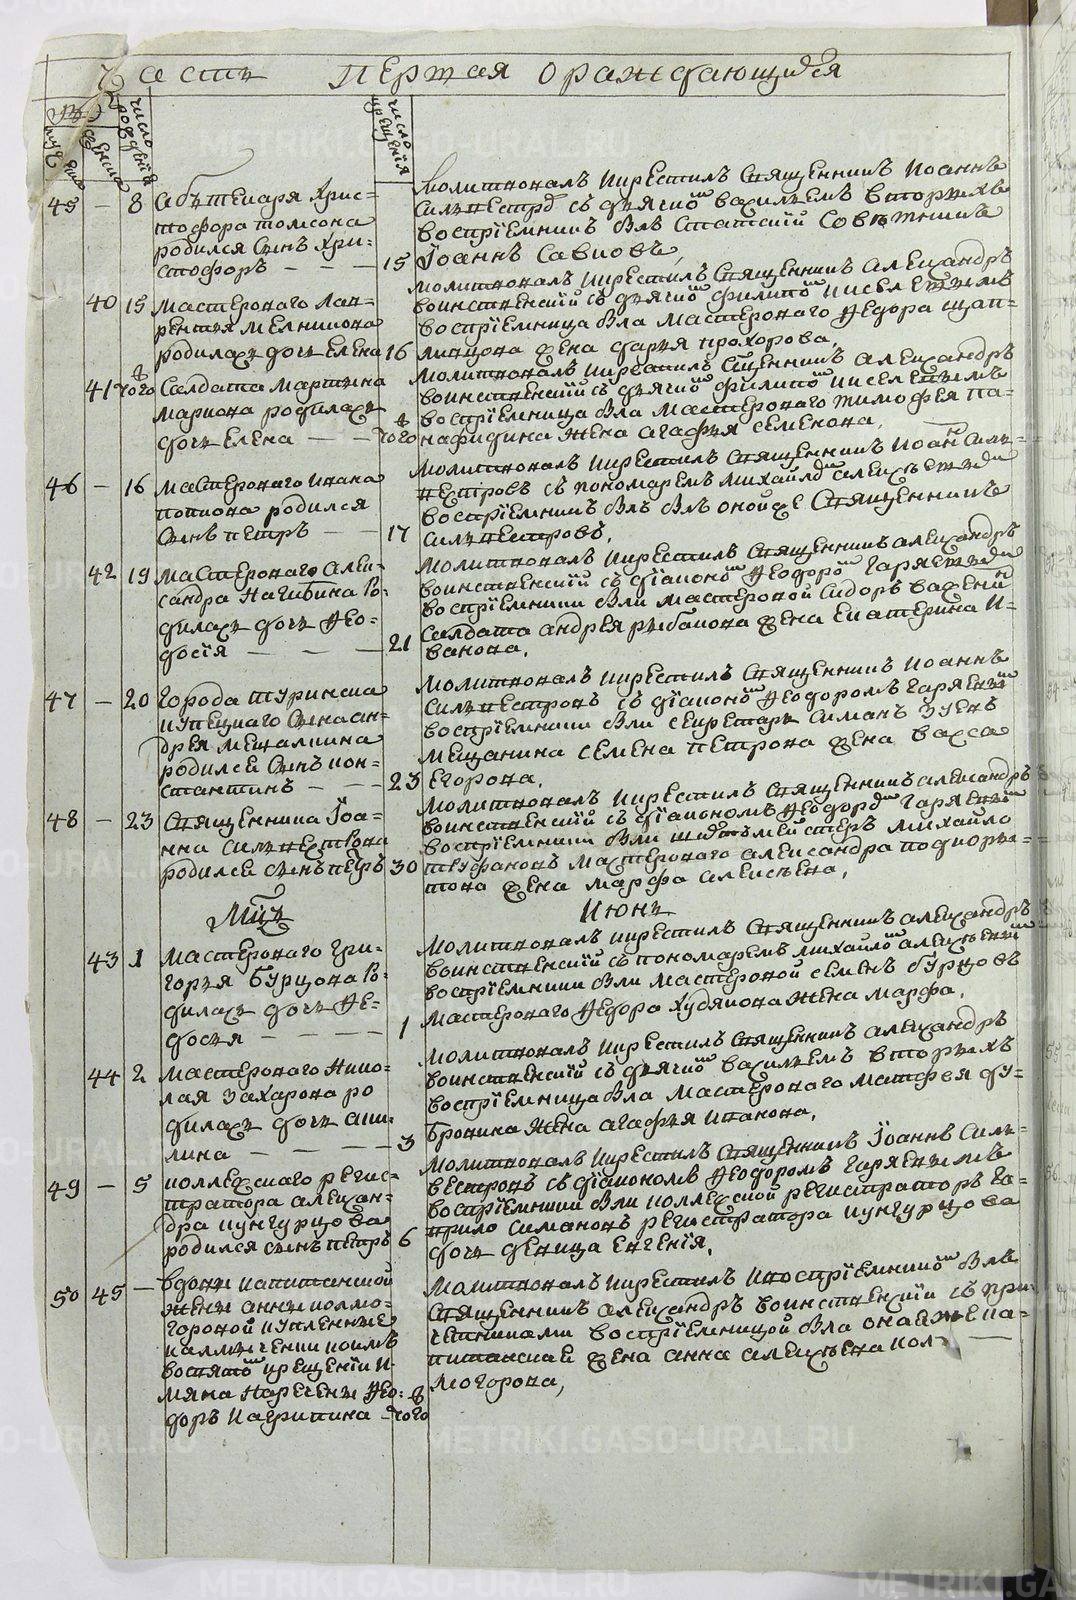 Часть первая о раждающихся
число рождения
число крещения
мужеска
женска
45 — 8 Абтекаря Хрис-
тофора Томсона
родился сынъ Хри-
стофоръ — — — 15
Молитвовалъ и крестилъ священникъ Иоаннъ
Сильвестров съ дьячкомъ Васильемъ Вторыхъ
воспрїемникъ былъ статскїй советникъ
Їоаннъ Савиовъ,
40 15 Мастерового Лав-
рентья Мелникова
родилась дочь Елена 16
Молитвовалъ и крестилъ священникъ Александръ
Воинственскїй съ дьячкомъ Филипомъ Киселевымъ
воспрїемница была мастерового Федора Щап-
линцова жена Дарья Прохорова,
41 того Салдата Мартына
Маркова родилась
дочь Елена — — того
Молитвовалъ и крестилъ священникъ Александръ
Воинственскїй съ дьячкомъ Филипомъ Киселевымъ
воспрїемница была мастерового Тимофея Па-
нафидина жена Агафья Семенова,
46 — 16 Мастерового Ивана
Попкова родился
сынъ Петръ — — 17
Молитвовалъ и крестилъ священникъ Иоанн Силь-
вестровъ съ пономаремъ Михайлом Алексеевым
воспрїемникъ былъ онойже священникъ
Сильвестровъ,
42 19 Мастерового Алек-
сандра Нагибина ро-
дилась дочь Фео-
досїя — — — 21
Молитвовалъ и крестилъ священникъ Александръ
Воинственскїй съ дїакономъ Феодором Гаряевым
воспрїемники были мастеровой Сидоръ Баженин
салдата Андрея Рыбакова жена Екатерина И-
ванова,
47 — 20 Города Туринска
купецкаго сына Ан-
дрея Мещалкина
родился сынъ Кон-
стантинъ — — 23
Молитвовалъ и крестилъ священникъ Иоаннъ
Сильвестровъ съ дїакономъ Феодоромъ Гаряевым
воспрїемники были секретарь Симанъ Зуевъ
мещанина Семена Петрова жена Васса
Егорова,
48 — 23 Священника Їоа-
нна Сильвестрова
родился сынъ Петръ 30
Молитвовалъ и крестилъ священникъ Александръ
Воинственскїй съ дїакономъ Феодором Гаряевым
воспрїемники были мейстеръ Михайло
мастерового Александра
това жена Марфа Алексеева,
Мцъ Июнь
43 1 Мастерового Гри-
горья Бурцова ро-
дилась дочь Фе-
досья — — — 1
Молитвовалъ и крестилъ священникъ Александръ
Воинственскїй съ пономаремъ Михайлом Алексеевым
воспрїемники были мастеровой Семенъ Бурцовъ
мастерового Федора Худякова жена Марфа,
44 2 Мастерового Нико-
лая Захарова ро
дилась дочь Аки-
лина — — — 3
Молитвовалъ и крестилъ священникъ Александръ
Воинственскїй съ дьячкомъ Васильемъ Вторыхъ
воспрїемница была мастерового Матфея Ду-
бровина жена Агафья Иванова,
49 — 5 Коллежскаго регис-
тратора Алексан-
дра Кунгурцова
родился сынъ Петръ 6
Молитвовалъ и крестилъ священникъ Їоаннъ Силь-
вестровъ съ дїакономъ Феодоромъ Гаряевымъ
воспрїемники были коллежской регистраторъ Га-
врило Симановъ регистратора Кунгурцова
дочь девица Евгенїя,
50 45 — Вдовы капитанской
жены Анны Колмо-
горовой купленные
калмычении коимъ
во святом крещении и-
мяна наречены Фео-
доръ и Агрипина — того
Молитвовалъ и крестилъ и воспрїемником былъ
священникъ Александръ Воинственскїй съ при-
четниками воспрїемницой была онаяже ка-
питанская жена Анна Алексеева Кол-
могорова,
METRIKI.GASO-URAL.RU